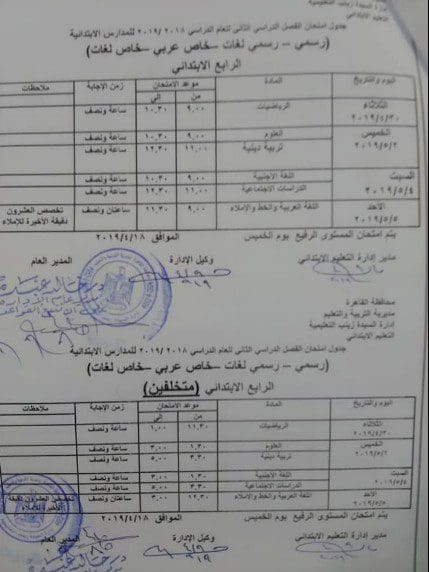 إدارة السيدة زينب التعليمية
التعليم الابتدائي
جدول امتحان الفصل الدراسي الثاني للعام الدراسي ٢٠١٨ /٢٠١٩ للمدارس الابتدائية
(رسمي – رسمي لغات –خاص عربي –خاص لغات)
الرابع الابتدائي
اليوم والتاريخ المادة موعد الامتحان زمن الإجابة ملاحظات
من إلى
الثلاثاء ٢٠١٩/٤/٣٠ الرياضيات ٩,٠٠ ١٠,٣٠ ساعة ونصف
الخميس ٢٠١٩/٥/٢ العلوم ٩,٠٠ ١٠,٣٠ ساعة ونصف
تربية دينية ١١,٠٠ ١٢,٣٠ ساعة ونصف
السبت ٢٠١٩/٥/٤ اللغة الأجنبية ٩,٠٠ ١٠,٣٠ ساعة ونصف
الدراسات الاجتماعية ١١,٠٠ ١٢,٣٠ ساعة ونصف
الأحد ٢٠١٩/٥/٥ اللغة العربية والخط والإملاء ٩,٠٠ ١١,٣٠ ساعتان ونصف تخصص العشرون دقيقة الأخيرة للإملاء
يتم امتحان المستوى الرفيع يوم الخميس الموافق ٢٠١٩/٤/١٨
مدير إدارة التعليم الابتدائي وكيل الإدارة المدير العام
محافظة القاهرة
مديرية التربية والتعليم
إدارة السيدة زينب التعليمية
التعليم الابتدائي
جدول امتحان الفصل الدراسي الثاني للعام الدراسي ٢٠١٨ /٢٠١٩ للمدارس الابتدائية
(رسمي – رسمي لغات –خاص عربي –خاص لغات)
الرابع الابتدائي (متخلفين)
اليوم والتاريخ المادة موعد الامتحان زمن الإجابة ملاحظات
من إلى
الثلاثاء ٢٠١٩/٤/٣٠ الرياضيات ١١,٣٠ ١,٠٠ ساعة ونصف
الخميس ٢٠١٩/٥/٢ العلوم ١,٣٠ ٣,٠٠ ساعة ونصف
تربية دينية ٣,٣٠ ٥,٠٠ ساعة ونصف
السبت ٢٠١٩/٥/٤ اللغة الأجنبية ١,٣٠ ٣,٠٠ ساعة ونصف
الدراسات الاجتماعية ٣,٣٠ ٥,٠٠ ساعة ونصف
الأحد ٢٠١٩/٥/٥ اللغة العربية والخط والإملاء ١٢,٣٠ ٣,٠٠ ساعتان ونصف تخصص العشرون دقيقة الأخيرة للإملاء
يتم امتحان المستوى الرفيع يوم الخميس الموافق ٢٠١٩/٤/١٨
مدير إدارة التعليم الابتدائي وكيل الإدارة المدير العام